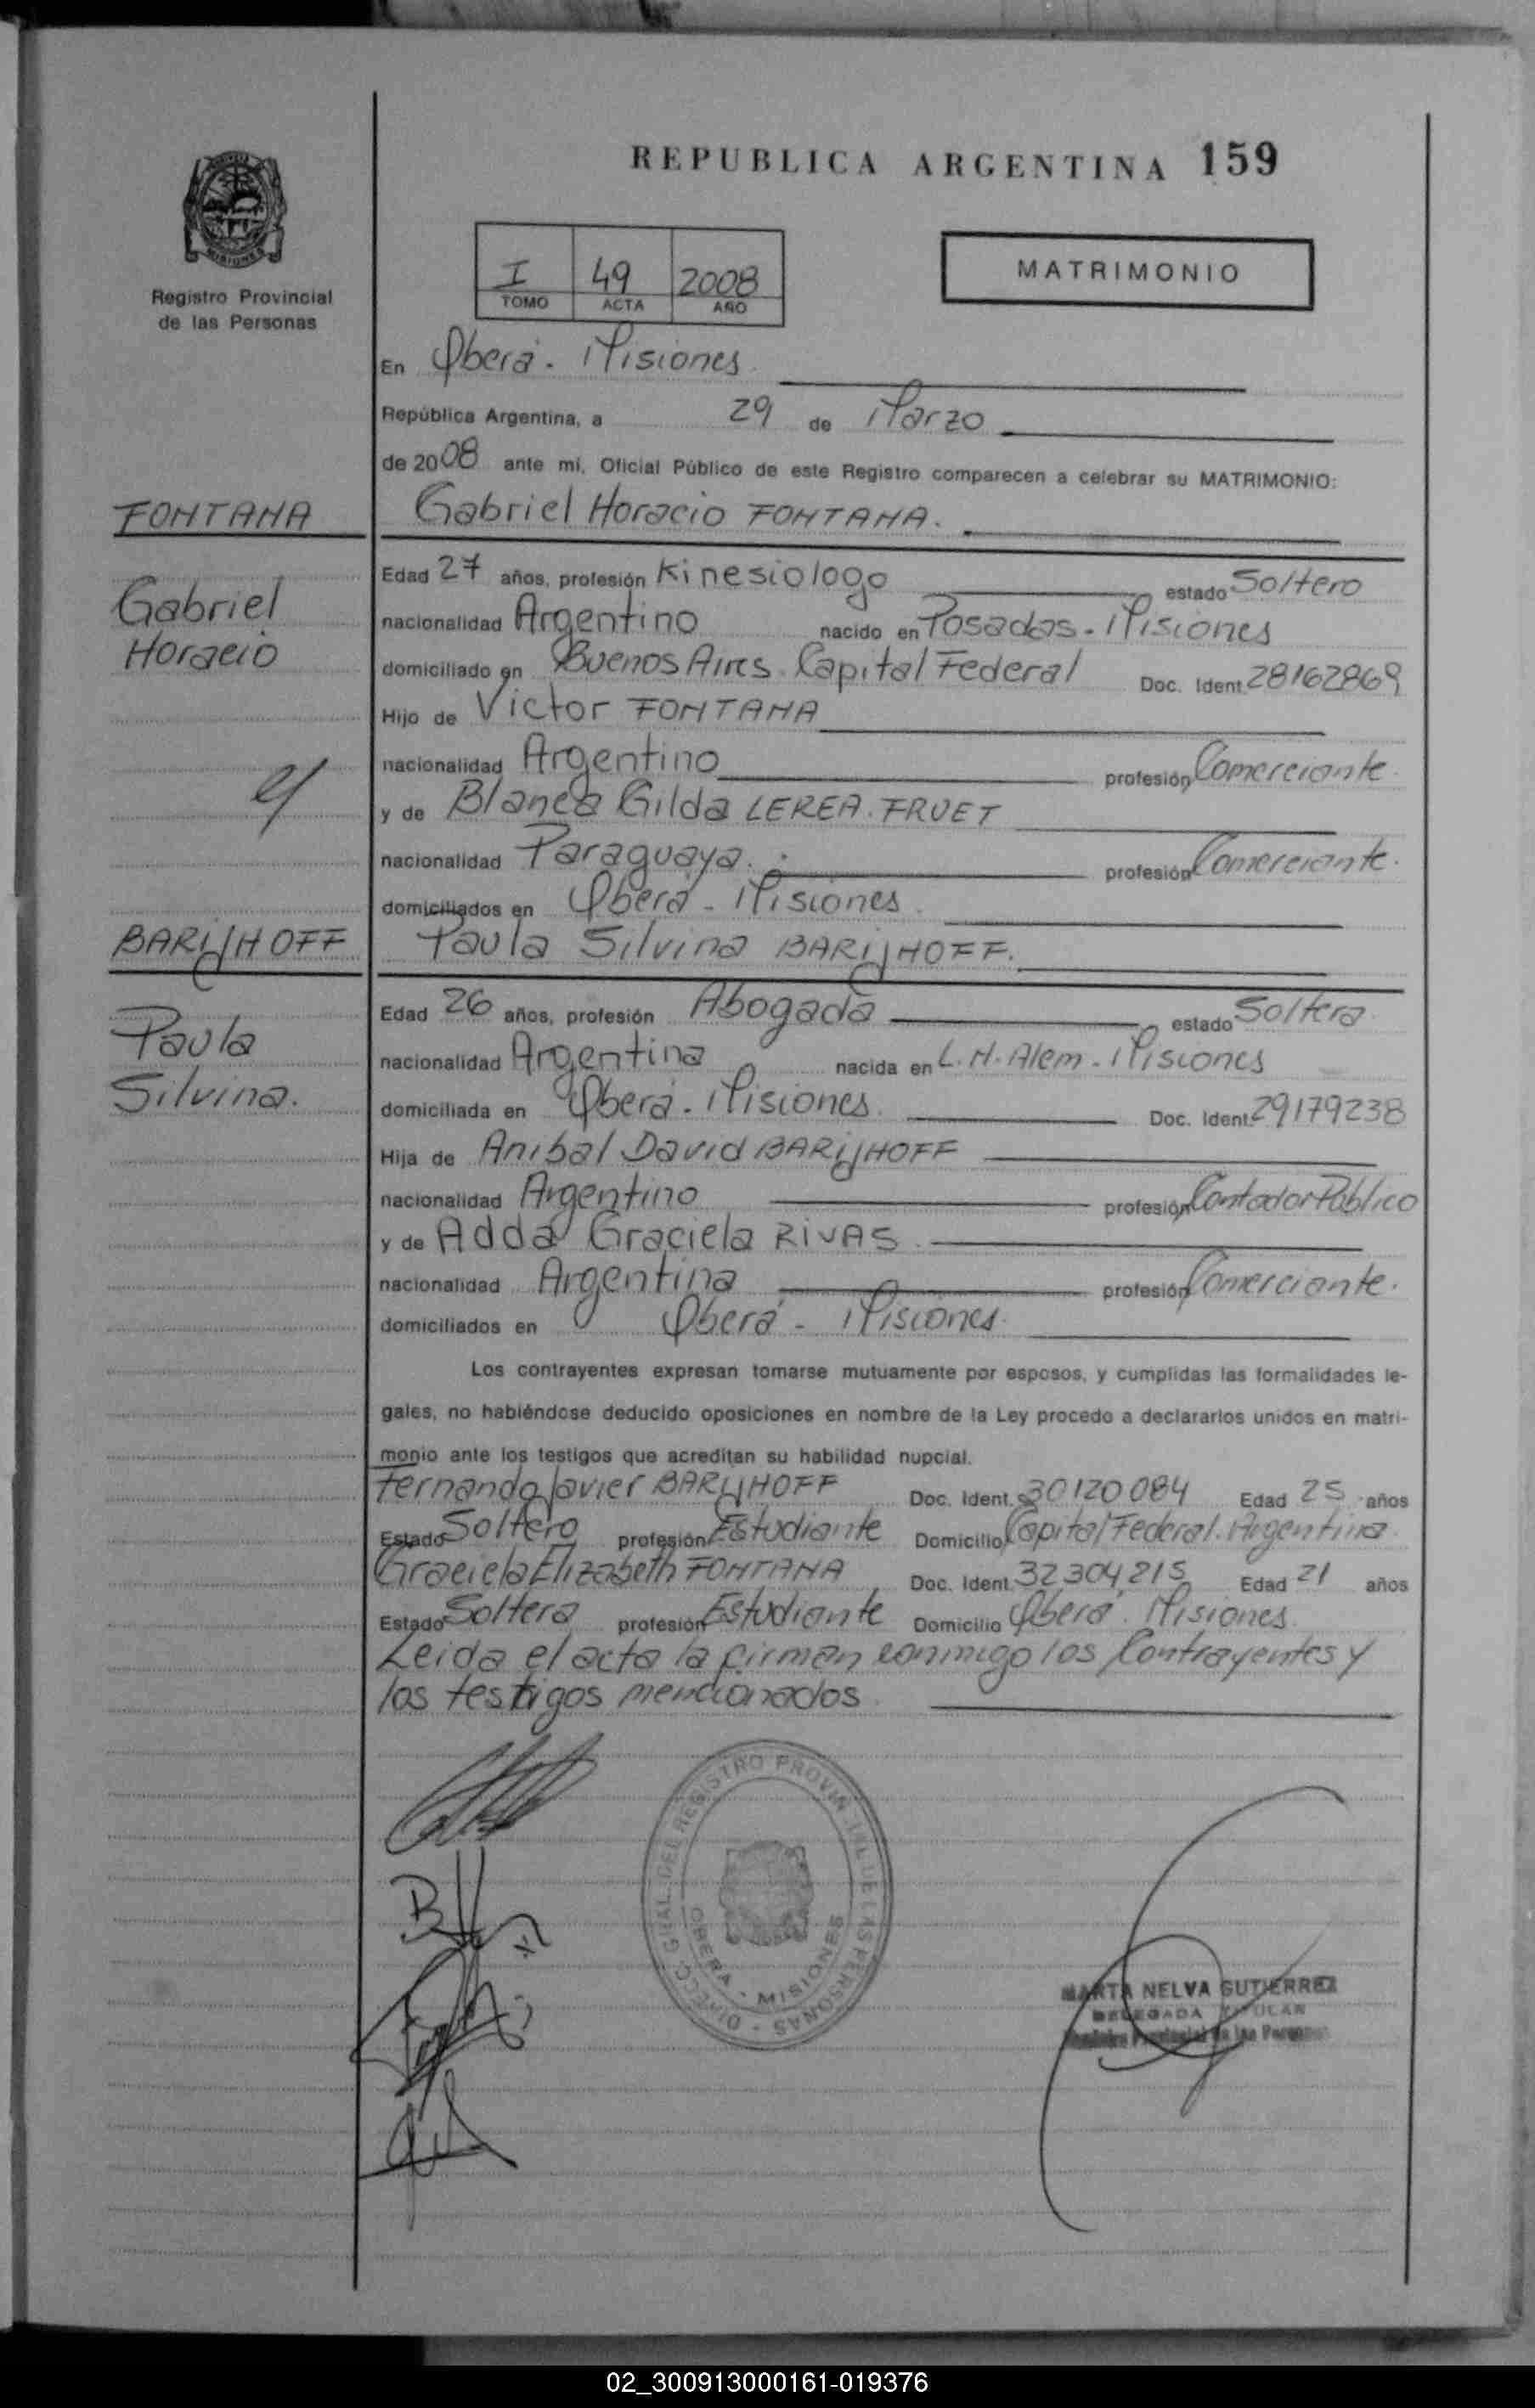 REPUBLICA ARGENTINA 159
MISIONES
Registro Provincial
de las Personas
I 49 2008
TOMO ACTA AÑO
MATRIMONIO
En Oberá - Misiones
República Argentina, a 29 de Marzo
de 2008 ante mí, Oficial Público de este Registro comparecen a celebrar su MATRIMONIO:
FONTANA
Gabriel Horacio FONTANA.
Edad 27 años, profesión Kinesiologo estado Soltero
Gabriel
nacionalidad Argentino nacido en Posadas - Misiones
Horacio
domiciliado en Buenos Aires. Capital Federal Doc. Ident. 28162869
Hijo de Victor FONTANA
nacionalidad Argentino profesión Comerciante.
y
y de Blanca Gilda LEREA. FRUET
nacionalidad Paraguaya. profesión Comerciante.
domiciliados en Oberá - Misiones
BARIJHOFF
Paula Silvina BARIJHOFF.
Edad 26 años, profesión Abogada estado Soltera
Paula
nacionalidad Argentina nacida en L. N. Alem - Misiones
Silvina.
domiciliada en Oberá - Misiones. Doc. Ident. 29179238
Hija de Anibal David BARIJHOFF
nacionalidad Argentino profesión Contador Público
y de Adda Graciela RIVAS
nacionalidad Argentina profesión Comerciante.
domiciliados en Oberá - Misiones.
Los contrayentes expresan tomarse mutuamente por esposos, y cumplidas las formalidades le-
gales, no habiéndose deducido oposiciones en nombre de la Ley procedo a declararlos unidos en matri-
monio ante los testigos que acreditan su habilidad nupcial.
Fernando Javier BARIJHOFF Doc. Ident. 30120084 Edad 25 años
Estado Soltero profesión Estudiante Domicilio Capital Federal. Argentina.
Graciela Elizabeth FONTANA Doc. Ident. 32304215 Edad 21 años
Estado Soltera profesión Estudiante Domicilio Oberá. Misiones.
Leida el acta la firman conmigo los Contrayentes y
los testigos mencionados
DIRECC. GRAL. DEL REGISTRO PROVINCIAL DE LAS PERSONAS -
OBERA - MISIONES
MARTA NELVA GUTIERREZ
DELEGADA TITULAR
Registro Provincial de las Personas
02_300913000161-019376